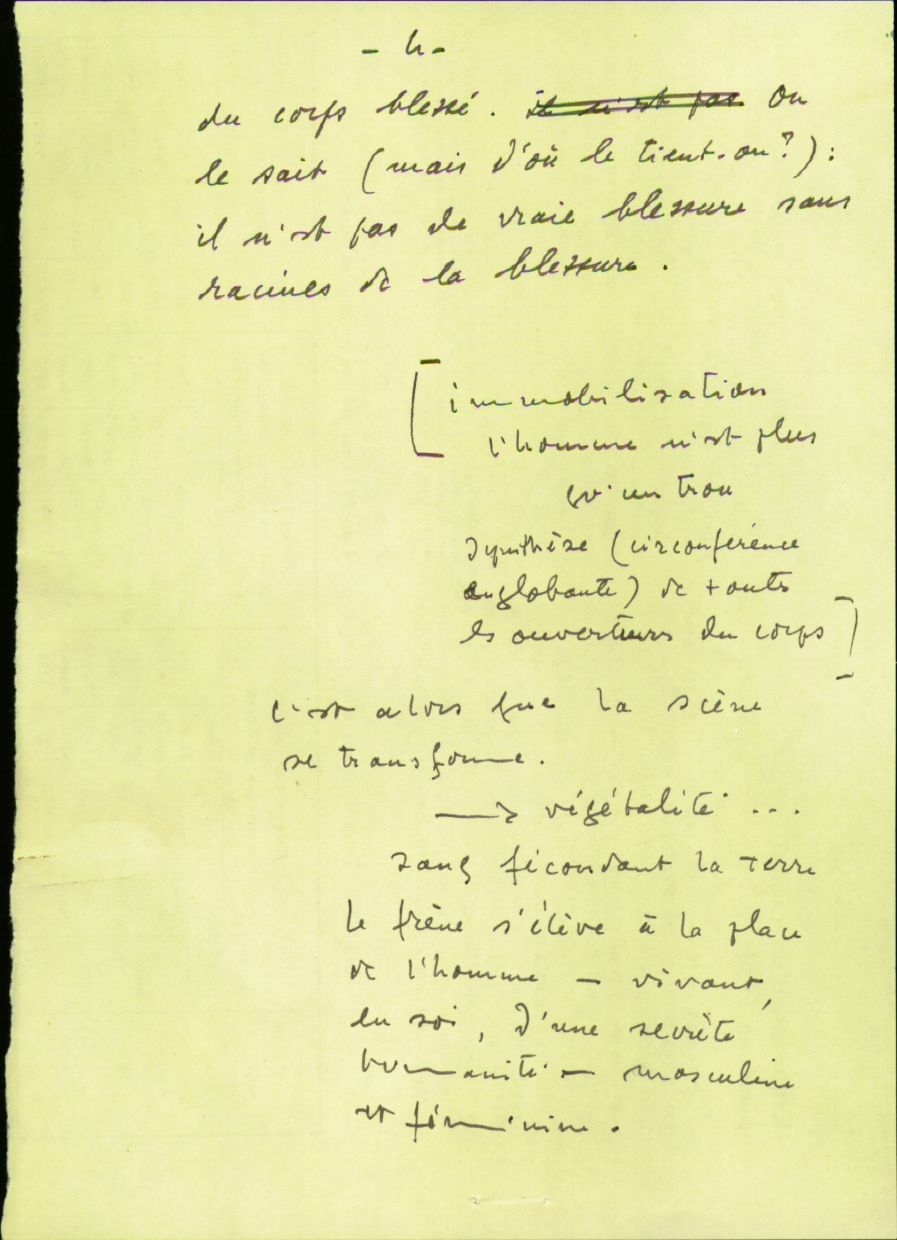 - 4 -
du corps blessé. Il n'est pas On
le sait (mais d'où le tient-on?) :
il n'est pas de vraie blessure sans
racines de la blessure.
[immobilisation
l'homme n'est plus
qu'un trou
synthèse (circonférence
englobante) de toutes
les ouvertures du corps]
C'est alors que la scène
se transforme.
→ végétalité ...
sang fécondant la terre
le frêne s'élève à la place
de l'homme — vivant,
en soi, d'une secrète
humanité — masculine
et féminine.